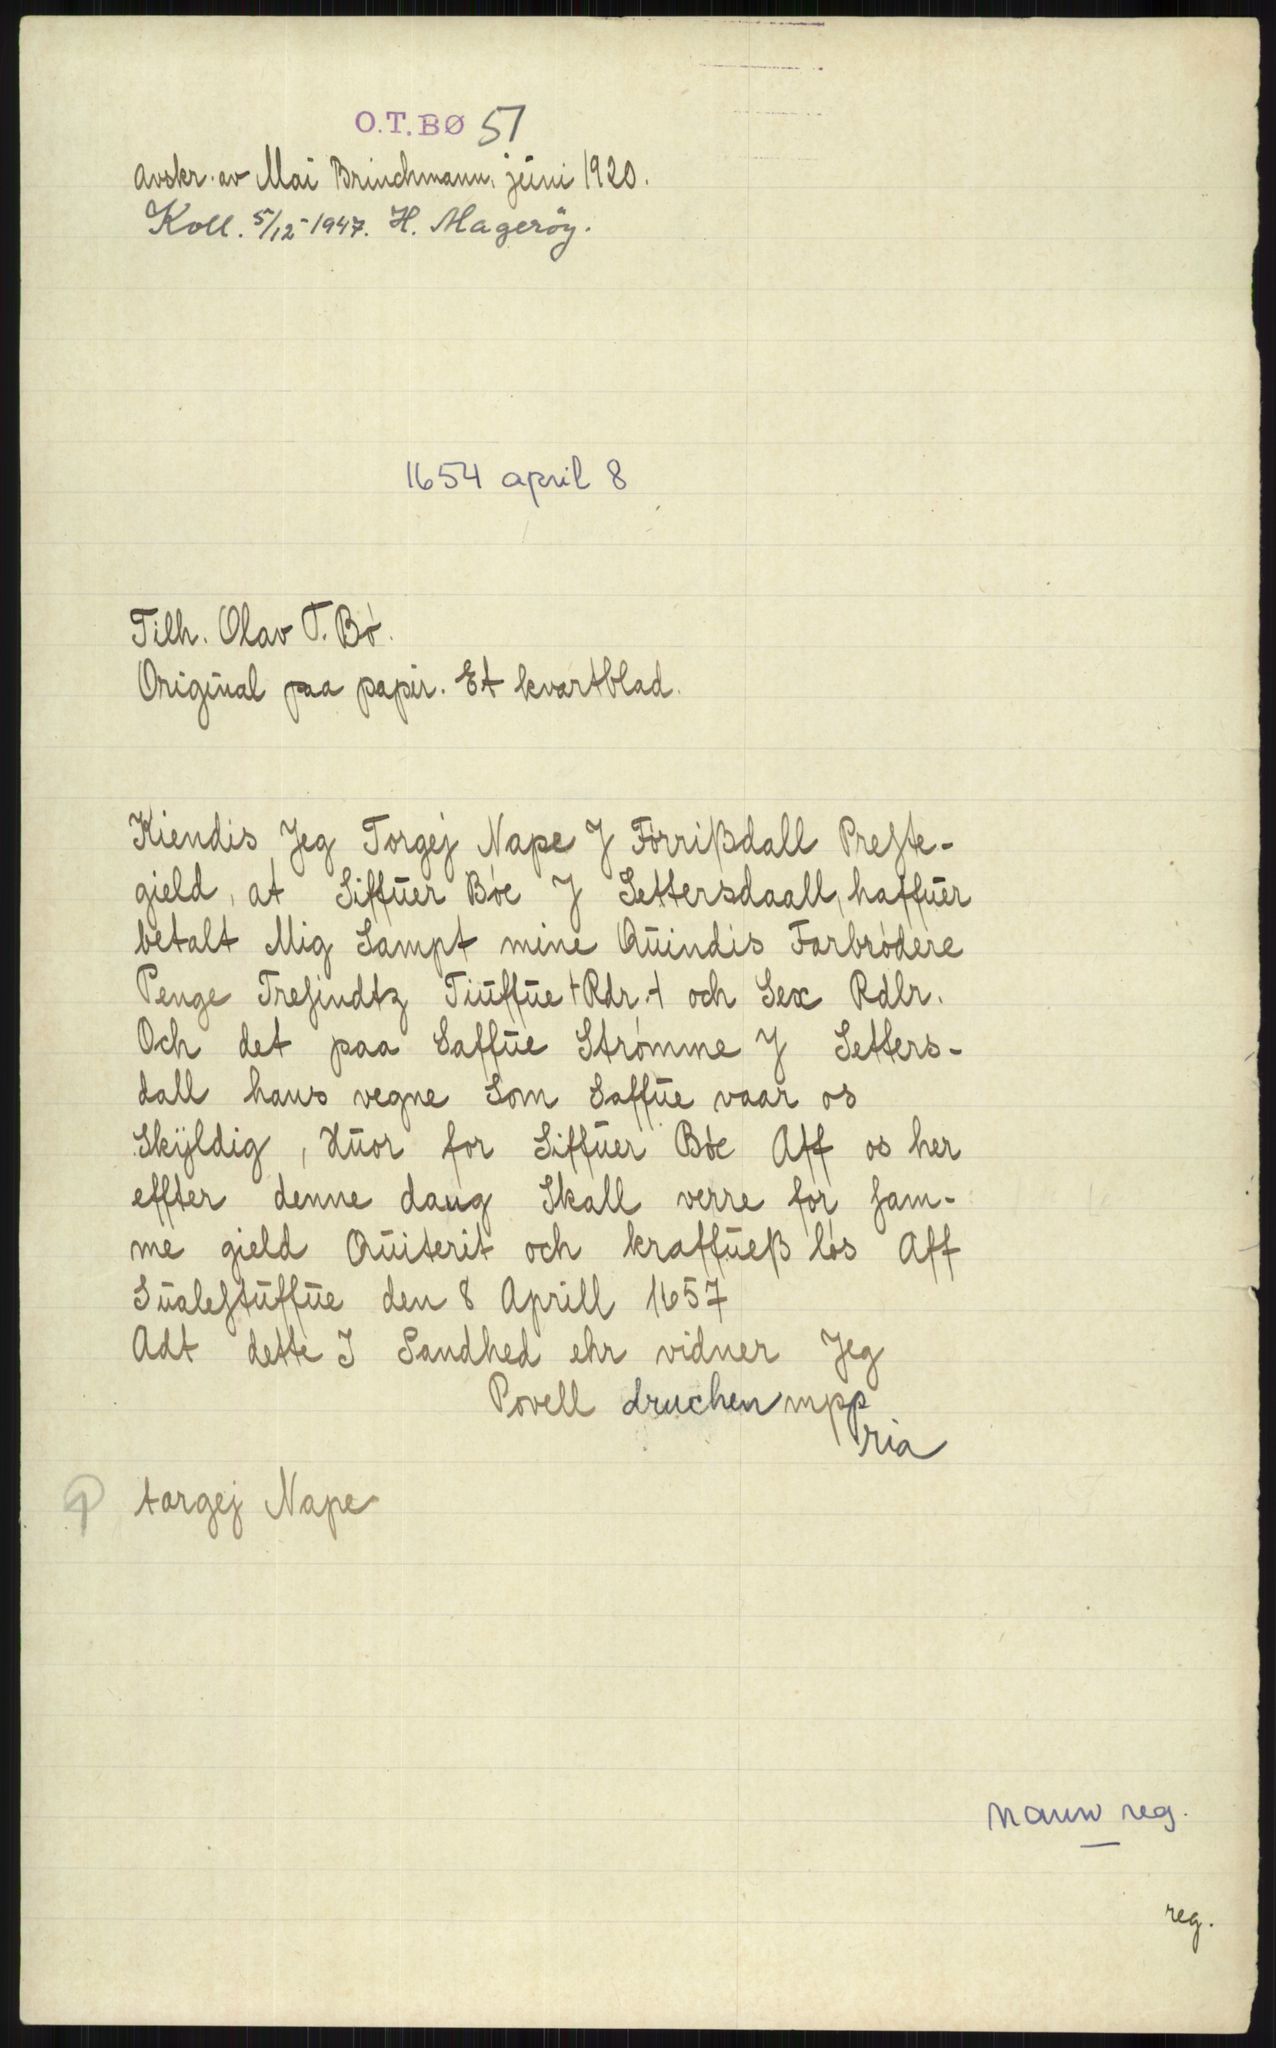 O.T.BØ 51
Avskr. av Mai Brinchmann, juni 1920.
Koll. 5/12-1947. H. Magerøy.
1654 april 8
Tilh. Olav T. Bø.
Original paa papir. Et kvartblad.
Kiendis Jeg Torgej Nape J Förrißdall Preste-
gield, at Siffuer Böe J Settersdaall, haffuer
betalt Mig Sampt mine Quindis Farbrödere
Penge Tresindtz Tiuffue + Rdr. + och Sex Rdlr.
Och det paa Saffue Strömme J Setters-
dall hans vegne Som Saffue vaar os
Skÿldig, Huor for Siffuer Böe Aff os her
effter denne daug Skall verre for sam-
me gield Quiterit och kraffueß lös Aff
Sualestuffue den 8 Aprill 1657
Adt dette J Sandhed ehr vidner Jeg
Povell druchen mpp
ria
torgej Nape
navn reg.
reg.